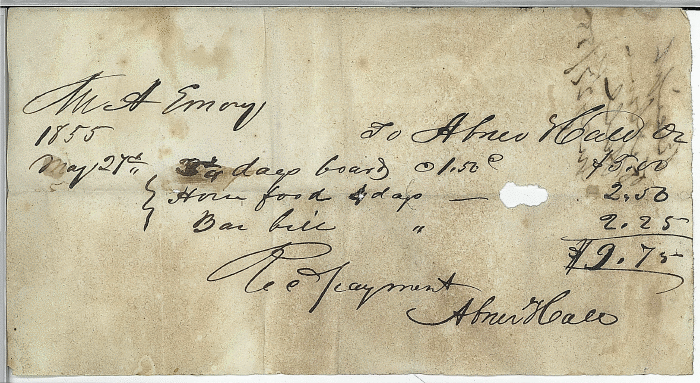 Mr A Emory
1855 To Abner Hale Dr
May 27th days board @ 1.50c $5.00
Horse food 4 days — 2.50
Bar bill " 2.25
$9.75
Recd payment
Abner Hale